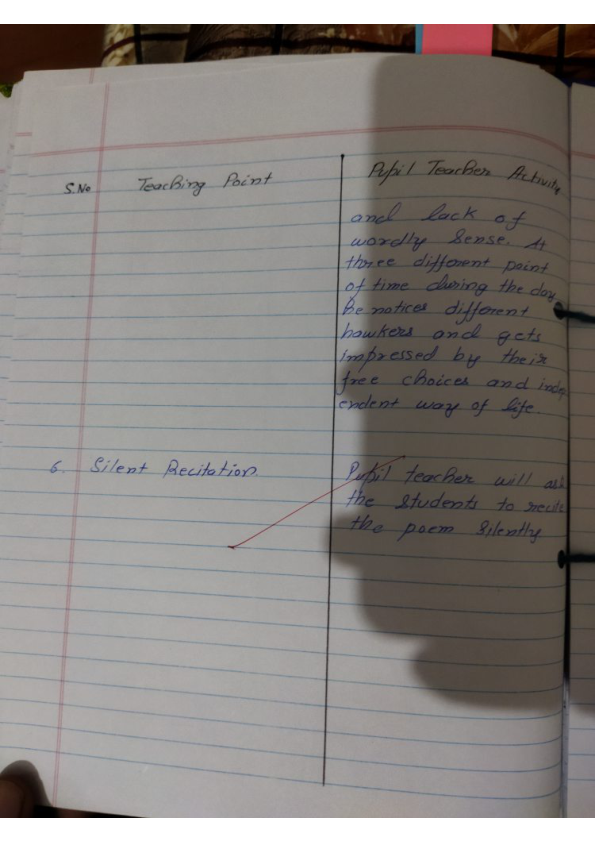 S.No Teaching Point Pupil Teacher Activity
and lack of
wordly sense. At
three different point
of time during the day
he notices different
hawkers and gets
impressed by their
free choices and indep
endent way of life
6. Silent Recitation. Pupil teacher will ask
the students to recite
the poem silently